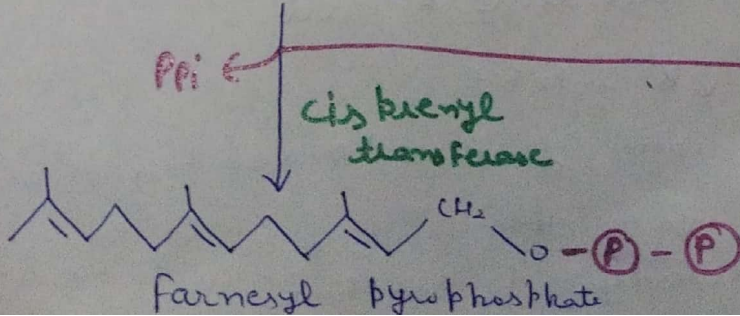 PPi
cis prenyl
transferase
CH₂
O - P - P
farnesyl pyrophosphate